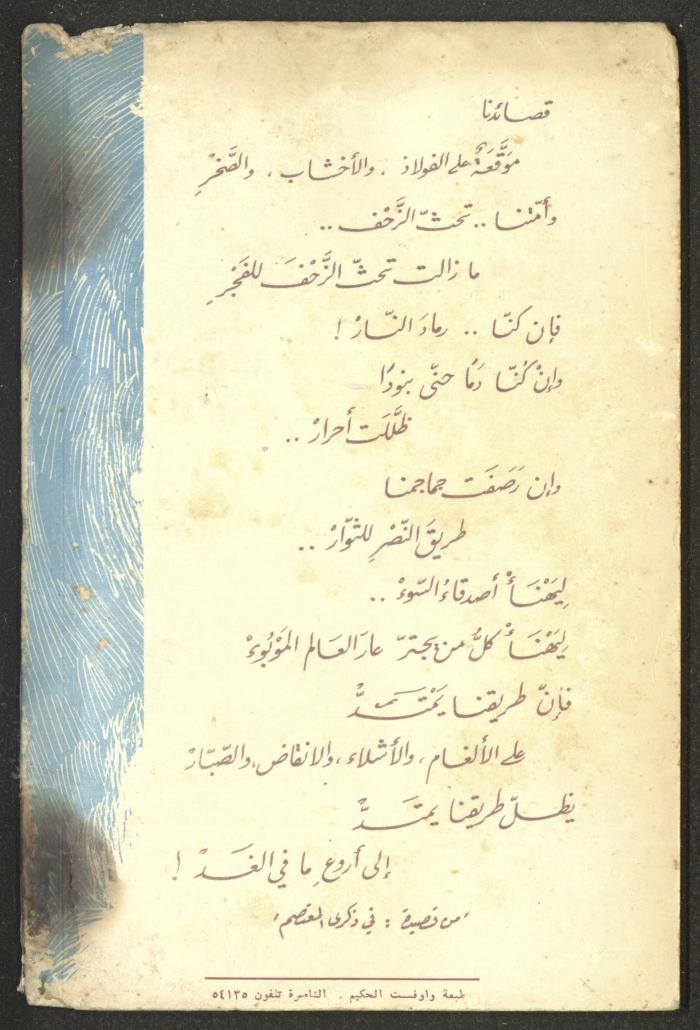 قصائدنا
موَقَّعَةٌ على الفولاذ ، والأخشاب ، والصَّخرِ
وأمّتنا .. تحثّ الزَّحْف ..
ما زالت تحثّ الزَّحْفَ للفَجْرِ
فإن كنّا .. رمادَ النّارْ !
وإنْ كُنّا دَمًا حنّى بنودًا
ظلَّلَت أحرارْ ..
وإن رَصَفَت جماجمنا
طريقَ النّصْرِ للثوّارْ ..
لِيَهْنَأْ أصدقاءُ السّوءْ ..
لِيَهْنَأْ كلُّ من يجترّ عارَ العالم المَوْبُوءْ
فإنّ طريقنا يَمْتَدُّ
على الألغام ، والأشلاء ، والانقاض ، والصّبّارْ
يظلّ طريقنا يمتَدُّ
إلى أروعِ ما في الغَدْ !
"من قصيدة : في ذكرى المعتصم"
طبعة واوفست الحكيم - الناصرة تلفون ٥٤١٣٥